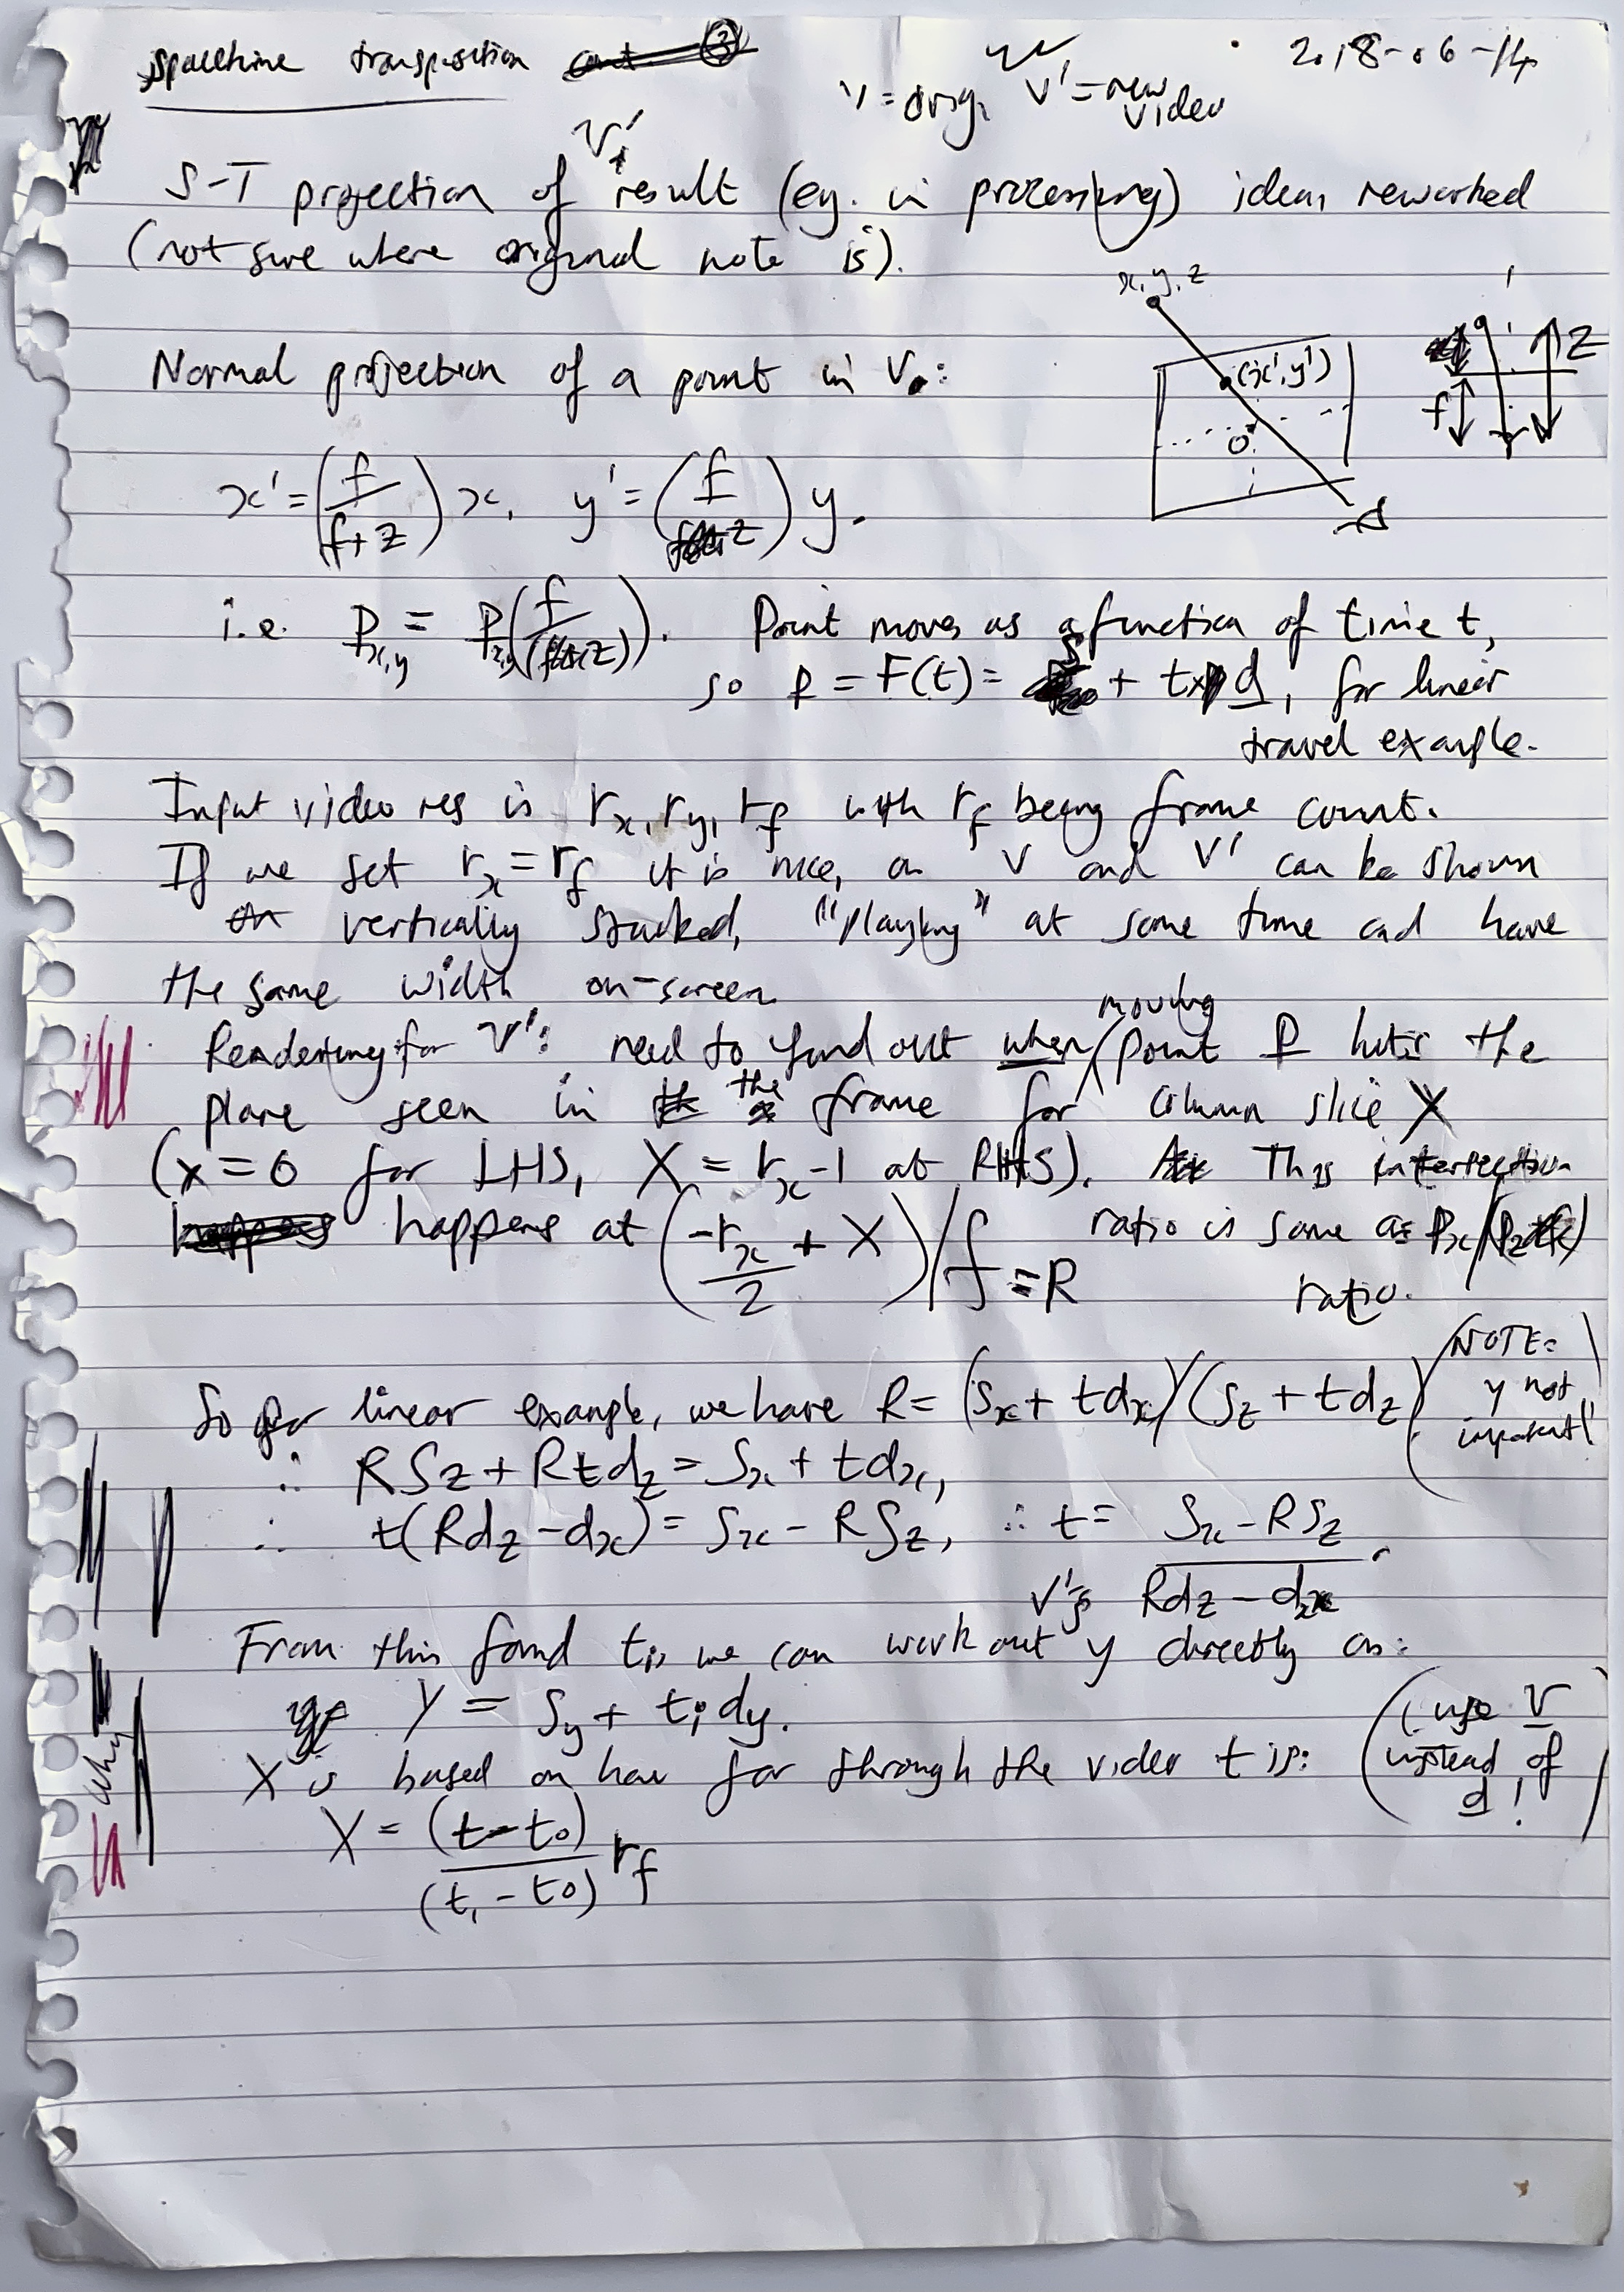 Spacetime transposition 2018-06-14
V = orig, V' = new video
V'
S-T projection of result (eg. in processing) ideas reworked
(not sure where original note is).
x, y, z
(x', y')
O
f
Z
Normal projection of a point in V:
x' = (f / f+z) x, y' = (f / z) y.
i.e. p x,y = p x,y (f / (z)). Point moves as a function of time t,
so p = F(t) = s + t × d, for linear
travel example.
Input video res is r_x, r_y, r_f with r_f being frame count.
If we set r_x = r_f it is nice, as V and V' can be shown
vertically stacked, "playing" at same time and have
the same width on-screen.
Rendering for V': need to find out when moving point p hits the
plane seen in the frame for column slice X
(x=0 for LHS, X = r_x - 1 at RHS). This intersection
happens at (-r_x/2 + X)/f = R ratio is same as p_x/p_z
ratio.
So for linear example, we have R = (s_x + t d_x)/(s_z + t d_z)
(NOTE: y not important!)
∴ R s_z + R t d_z = s_x + t d_x,
∴ t(R d_z - d_x) = s_x - R s_z, ∴ t = (s_x - R s_z) / (R d_z - d_x).
From this found t_i, we can work out V''s y directly as:
Y = s_y + t_i d_y.
(use v instead of d!)
X is based on how far through the video t is:
X = (t - t_0) / (t_1 - t_0) r_f
why